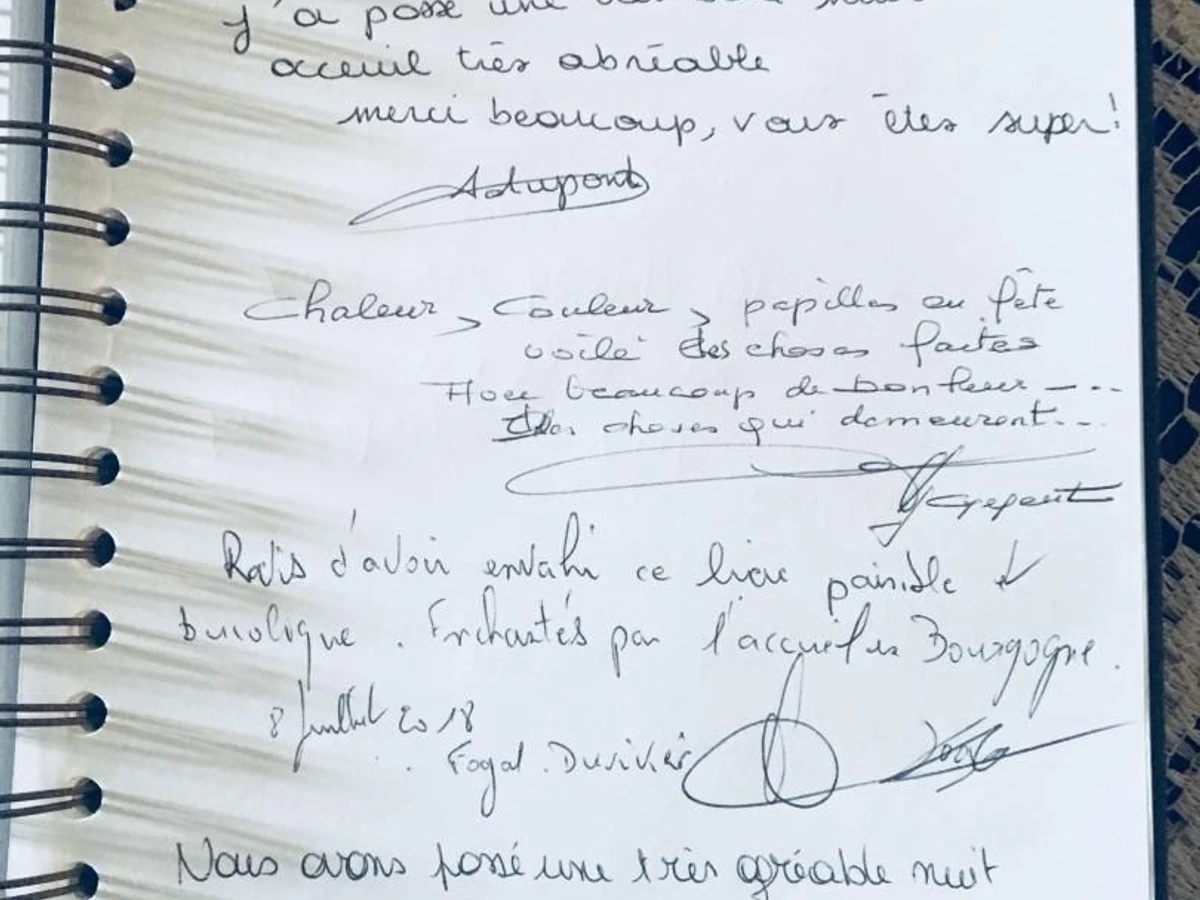 j'a passé une
acceuil très abréable
merci beaucoup, vous êtes super!
Adupont
Chaleur, Couleur, papilles en fête
voilà des choses faites
Avec beaucoup de bonheur - ...
Des choses qui demeurent...
Ravis d'avoir envahi ce lieu paisible et
bucolique. Enchantés par l'accueil en Bourgogne.
8 Juillet 2018
Fogal. Duvivier
Nous avons passé une très agréable nuit